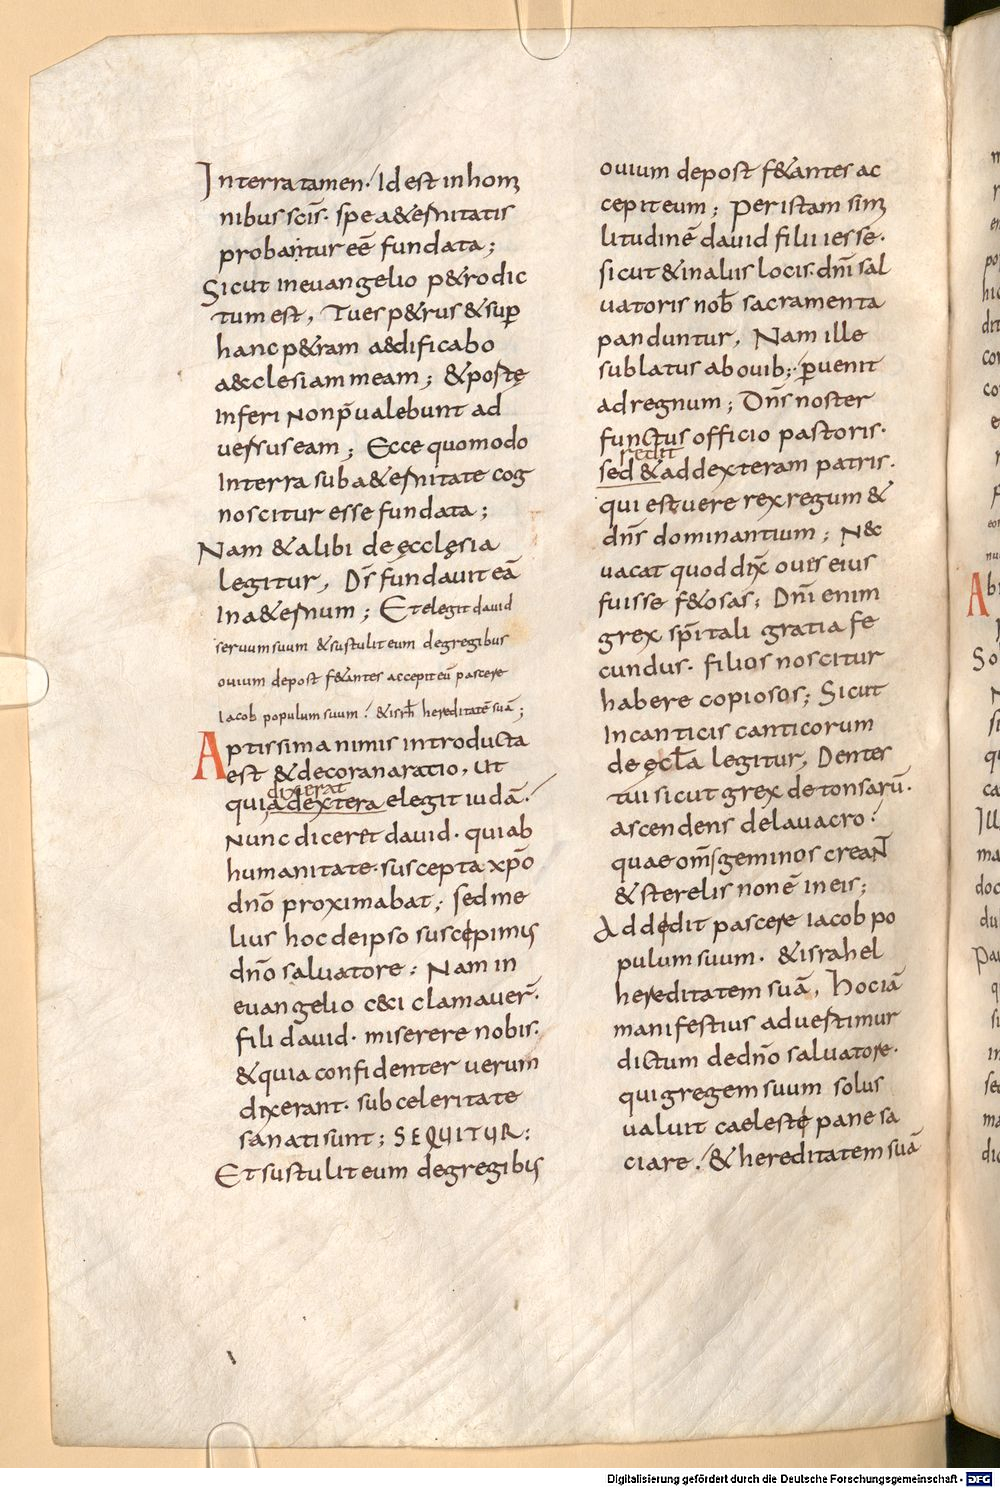 Interra tamen. Id est inhomi
nibus scis. spe a&ernitatis
probantur eē fundata;
Sicut ineuangelio p&ro dic
tum est, Tu es p&rus & sup
hanc p&ram aedificabo
aecclesiam meam; & portę
inferi non p̄ualebunt ad
uersus eam; Ecce quomodo
Interra sub a&ernitate cog
noscitur esse fundata;
Nam & alibi de ęcclęsia
legitur, Ds̄ fundauit eā
In a&ernum; Et elegit dauid
seruum suum & sustulit eum degregibus
ouium depost f&antes accepit eū pascere
Iacob populum suum. & isrh̄ hereditatē suā;
Aptissima nimis introducta
est & decora narratio, ut
dixerat
quia dextera elegit iudā.
Nunc dicer& dauid. quiab
humanitate suscepta xp̄o
dn̄o proximabat; sed me
lius hoc deipso suscepimus
dn̄o saluatore; Nam in
euangelio c&ci clamauer̄.
fili dauid. miserere nobis.
& quia confidenter uerum
dixerant. sub celeritate
sanati sunt; SEQUITUR:
Et sustulit eum degregibus
ouium depost f&antes ac
cepit eum; Per istam simi
litudinē dauid filii iesse.
sicut & in aliis locis. dn̄i sal
uatoris nob̄ sacramenta
panduntur, Nam ille
sublatus abouib; puenit
ad regnum; Dn̄s noster
functus officio pastoris.
redit
sed & ad dexteram patris.
qui est uere rex regum &
dn̄s dominantium; Nec
uacat quod dix̄ oues eius
fuisse f&osas; Dn̄i enim
grex sp̄itali gratia fe
cundus. filios noscitur
habere copiosos; Sicut
Incanticis canticorum
de ęcl̄a legitur, Dentes
tui sicut grex detonsarū.
ascendens delauacro.
quae om̄s geminos creant
& sterelis non ē in eis;
Addedit pascere iacob po
pulum suum. & israhel
hereditatem suā, Hoc iā
manifestius aduestimur
dictum de dn̄o saluatore.
qui gregem suum solus
ualuit caeleste pane sa
ciare. & hereditatem suā
Digitalisierung gefördert durch die Deutsche Forschungsgemeinschaft - DFG